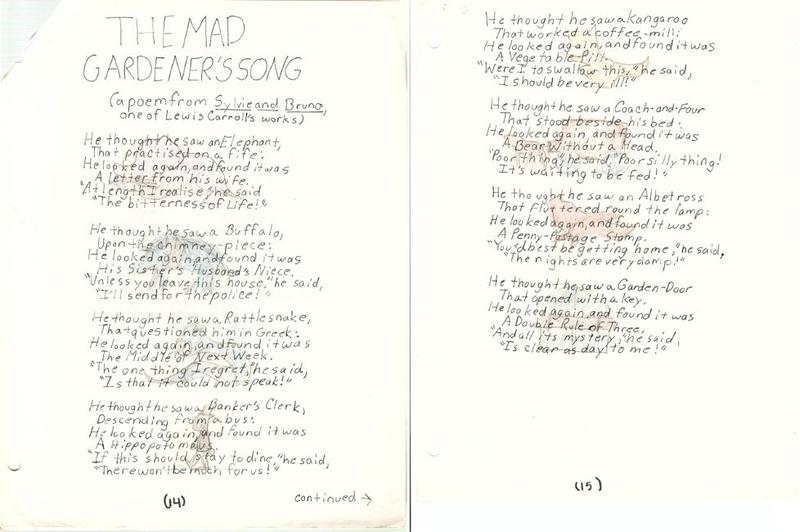 THE MAD
GARDENER'S SONG
(a poem from Sylvie and Bruno,
one of Lewis Carroll's works)
He thought he saw an Elephant,
That practised on a fife:
He looked again, and found it was
A letter from his wife.
"At length I realise," he said
"The bitterness of Life!"
He thought he saw a Buffalo,
Upon the chimney-piece:
He looked again, and found it was
His Sister's Husband's Niece.
"Unless you leave this house," he said,
"I'll send for the police!"
He thought he saw a Rattlesnake,
That questioned him in Greek:
He looked again, and found it was
The Middle of Next Week.
"The one thing I regret," he said,
"Is that it could not speak!"
He thought he saw a Banker's Clerk,
Descending from a bus:
He looked again, and found it was
A Hippopotomaus.
"If this should stay to dine," he said,
"There won't be much for us!"
(14)
continued →
He thought he saw a Kangaroo
That worked a coffee-mill:
He looked again, and found it was
A Vegetable Pill.
"Were I to swallow this," he said,
"I should be very ill!"
He thought he saw a Coach-and-Four
That stood beside his bed:
He looked again, and found it was
A Bear Without a Head.
"Poor thing," he said, "Poor silly thing!
It's waiting to be fed!"
He thought he saw an Albetross
That fluttered round the lamp:
He looked again, and found it was
A Penny-Postage Stamp.
"You'd best be getting home," he said,
"The nights are very damp!"
He thought he saw a Garden-Door
That opened with a key.
He looked again and found it was
A Double Rule of Three.
"And all its mystery," he said,
"Is clear as day to me!"
(15)